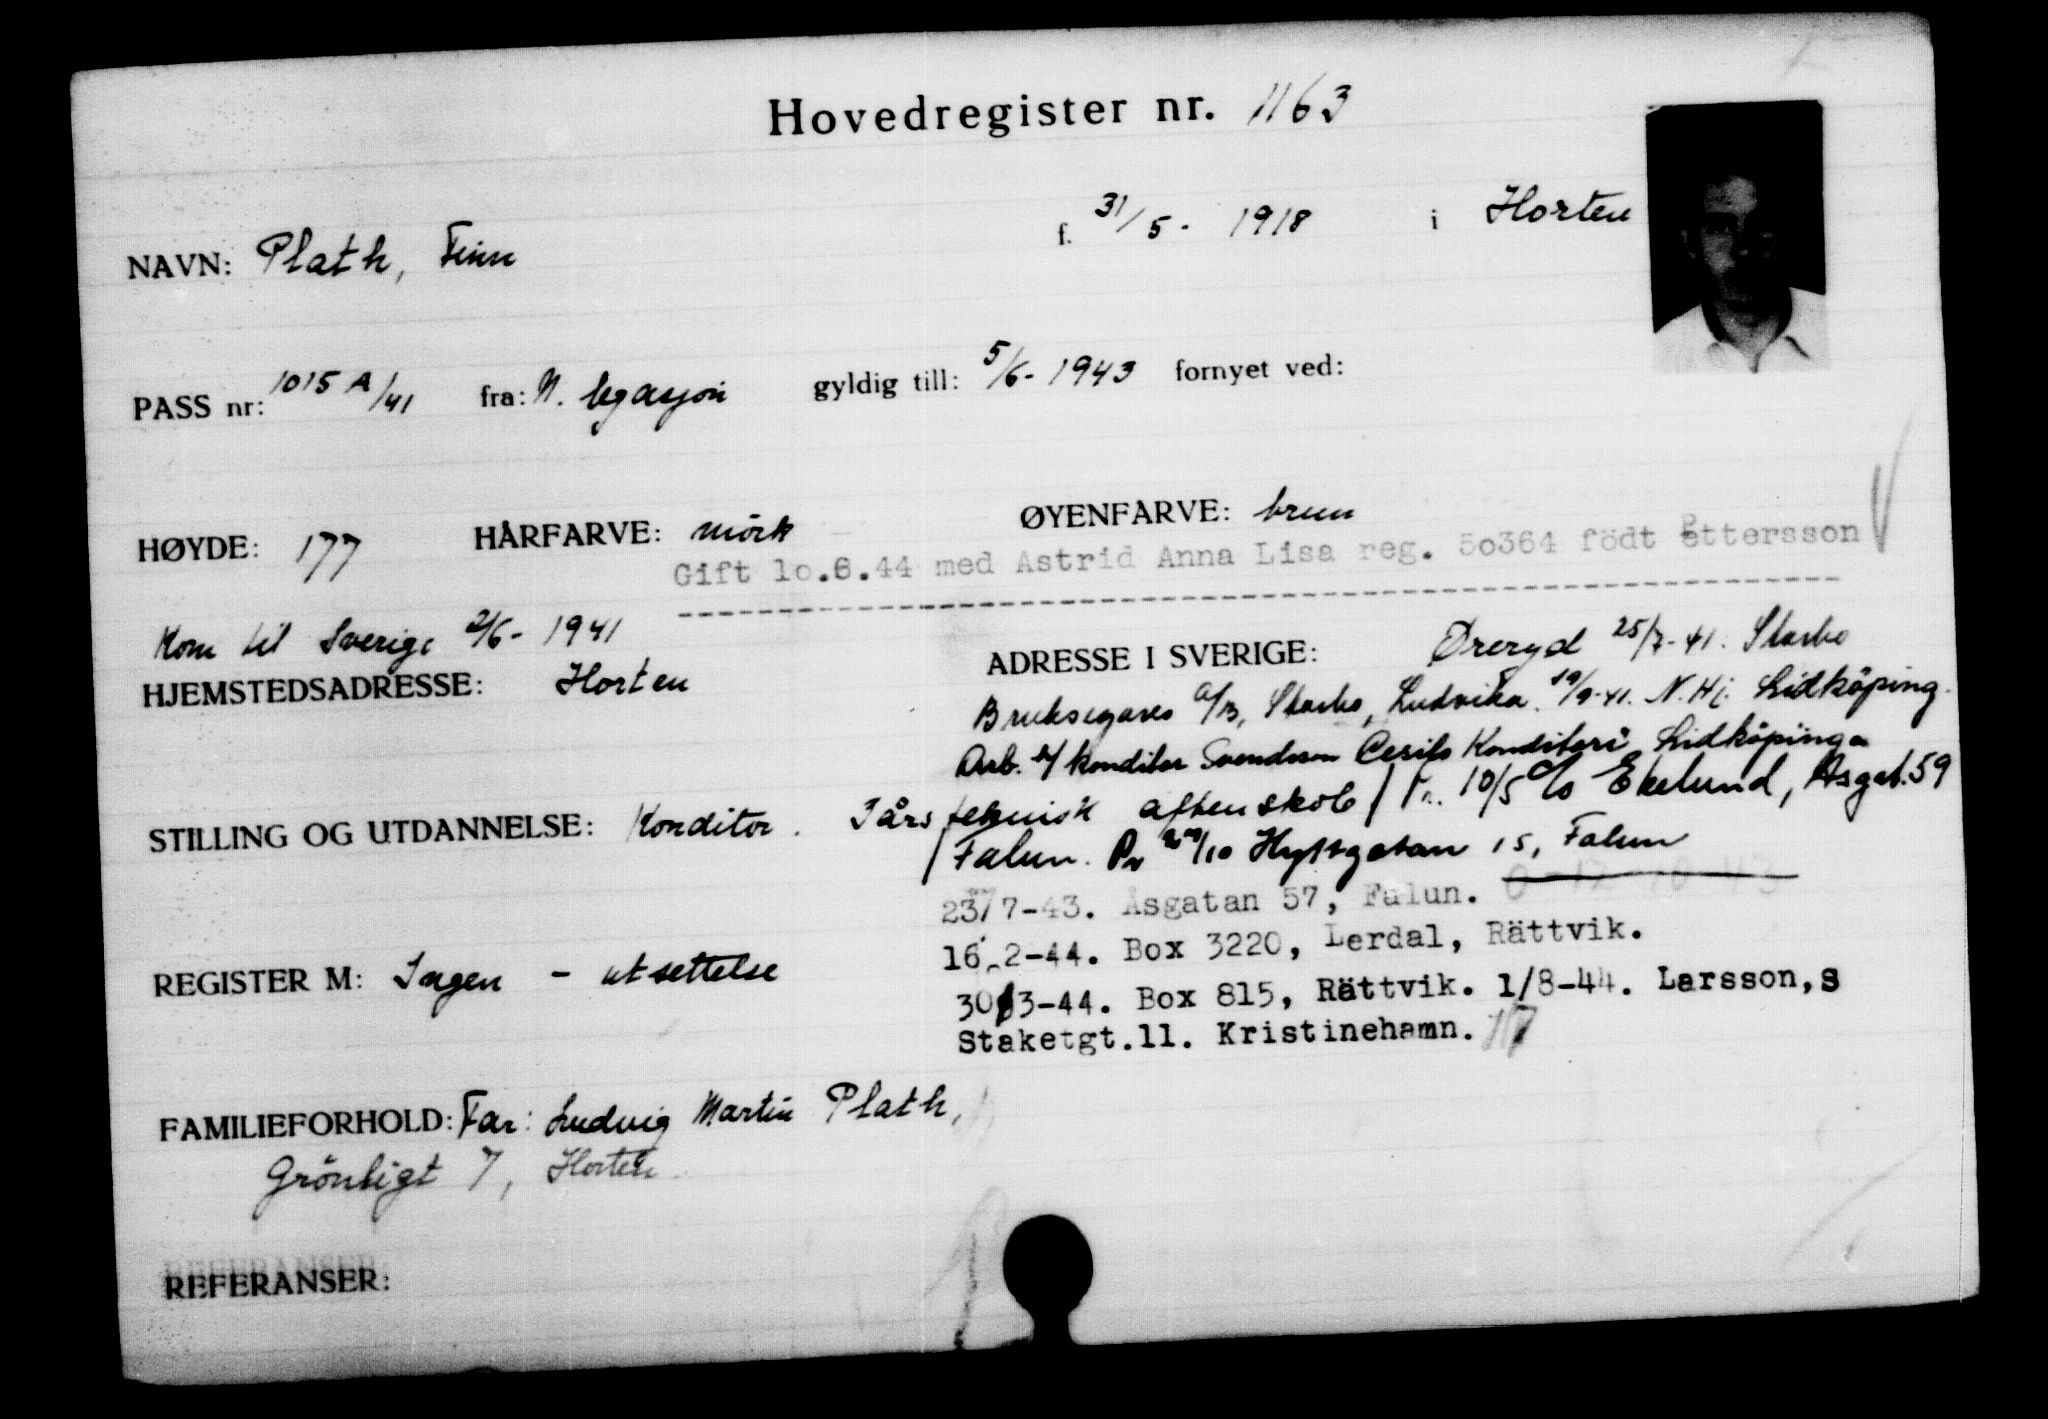 Hovedregister nr. 1163
NAVN: Plath, Finn f. 31/5 - 1918 i Horten
PASS nr: 1015 A/41 fra: N. legasjon gyldig till: 5/6 - 1943 fornyet ved:
HØYDE: 177 HÅRFARVE: mörk ØYENFARVE: brun
Gift lo.6.44 med Astrid Anna Lisa reg. 5o364 född Pettersson
Kom til Sverige 2/6 - 1941
HJEMSTEDSADRESSE: Horten
ADRESSE I SVERIGE: Øreryd 25/7-41. Starbo
Bruksegares A/B, Starbo, Ludvika. 19/9-41. N. Hj. Lidköping.
Arb. konditor Svendsson Konditori Lidköping
STILLING OG UTDANNELSE: Konditor. 1 års teknisk aftenskole / Fr. 10/5 c/o Ekelund, Åsgat. 59
Falun. Pr /10 Hyttgatan 15, Falun
23/7-43. Åsgatan 57, Falun.
16.2-44. Box 3220, Lerdal, Rättvik.
REGISTER M: Ingen - utsettelse
30/3-44. Box 815, Rättvik. 1/8-44. Larsson, S
Staketgt.11. Kristinehamn. 17
FAMILIEFORHOLD: Far: Ludvig Martin Plath,
Grönligt 7, Horten.
REFERANSER: